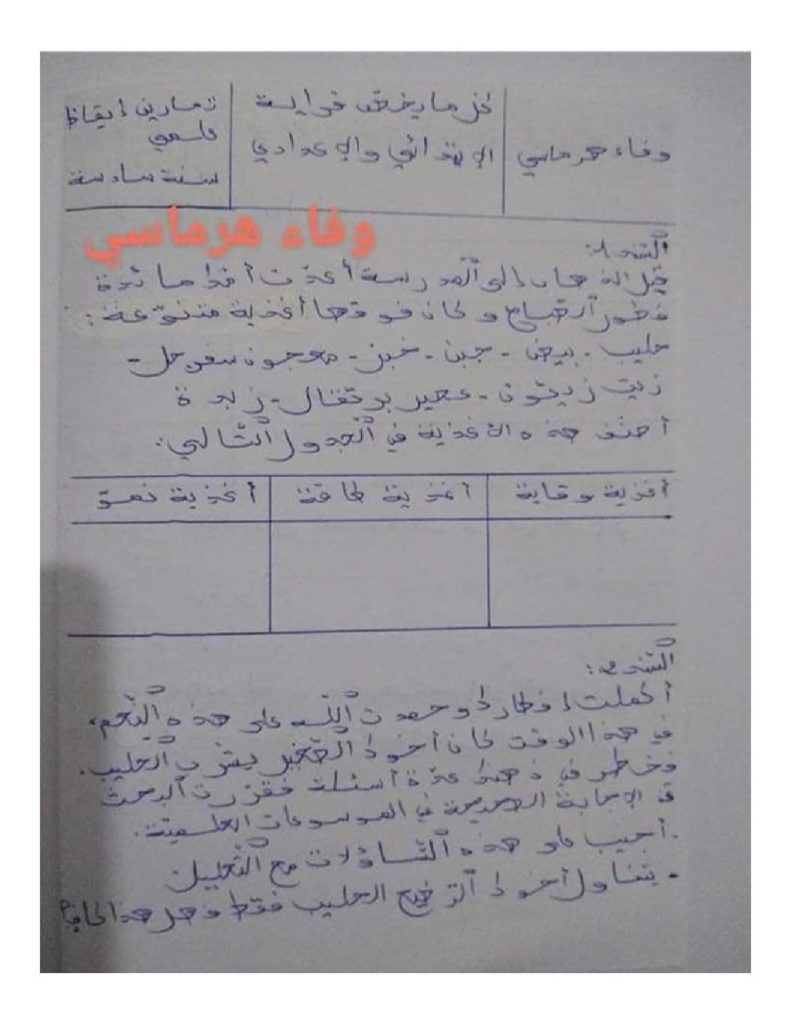 وفاء هرماسي
كل ما يخص قراية
الابتدائي والاعدادي
تمارين ايقاظ
علمي
سنة سادسة
وفاء هرماسي
السند 1:
قبل الذهاب إلى المدرسة أعدت أمك مائدة
فطور الصباح و كان فوقها أغذية متنوعة:
حليب - بيض - جبن - خبز - معجون سفرجل -
زيت زيتون - عصير برتقال - زبدة
أصنف هذه الأغذية في الجدول التالي:
أغذية وقاية
أغذية طاقة
أغذية نمو
السند 2:
أكملت إفطارك وحمدت الله على هذه النعم،
في هذا الوقت كان أخوك الصغير يشرب الحليب.
فخطر في ذهنك عدة أسئلة فقررت البحث
في الإجابة الصحيحة في الموسوعات العلمية.
. أجيب على هذه التساؤلات مع التعليل
- يتناول أخوك الرضيع الحليب فقط فهل هذا كاف؟